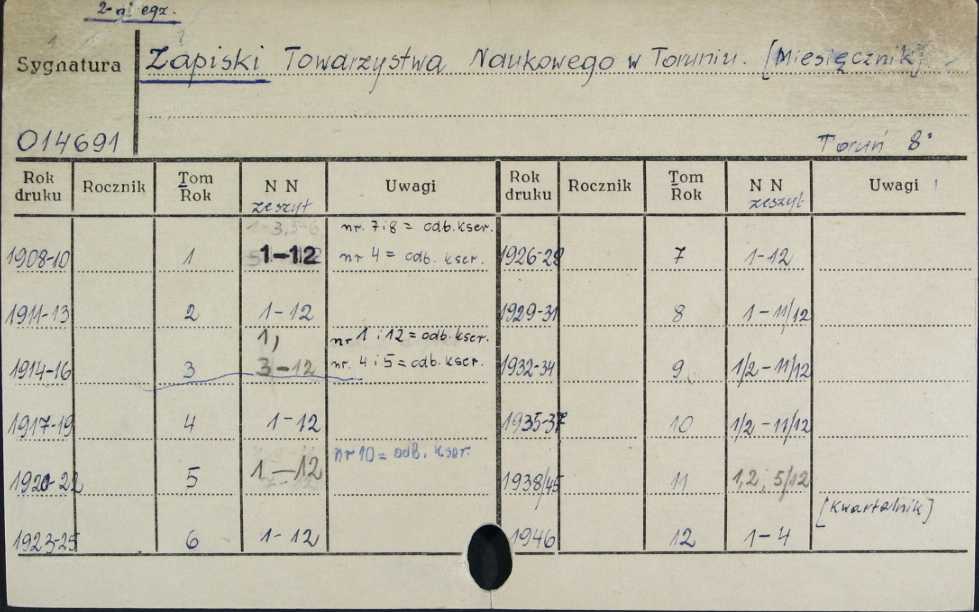 2-gi egz.
Sygnatura Zapiski Towarzystwa Naukowego w Toruniu. [Miesięcznik]
O14691 Toruń 8°
Rok druku Rocznik Tom Rok NN zeszyt Uwagi Rok druku Rocznik Tom Rok NN zeszyt Uwagi
nr. 7i8 = odb. kser.
1908-10 1 1-12 nr 4 = odb. kser. 1926-28 7 1-12
1911-13 2 1-12 1929-31 8 1-11/12
1, nr 1 i 12 = odb. kser.
1914-16 3 3-12 nr. 4 i 5 = odb. kser. 1932-34 9 1/2-11/12
1917-19 4 1-12 1935-37 10 1/2-11/12
nr 10 = odb. kser.
1920-22 5 1-12 1938/45 11 1,2; 5/12
[Kwartalnik]
1923-25 6 1-12 1946 12 1-4